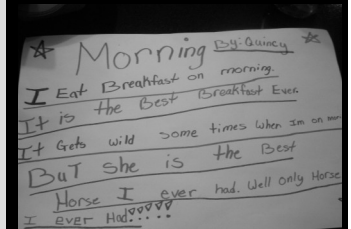 Morning By: Quincy
I Eat Breakfast on morning.
It is the Best Breakfast Ever.
It Gets wild some times when Im on
But she is the Best
Horse I ever had. Well only Horse
I ever Had!!!!!